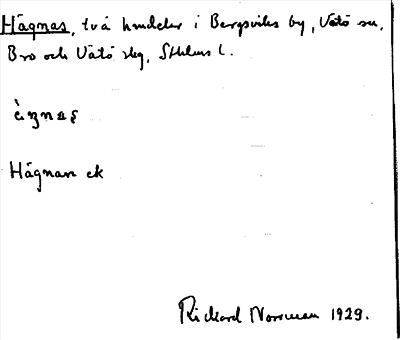 Hägnas, två hmdelar i Bergsviks by, Vätö sn,
Bro och Vätö slg, Sthlms l.
Hägnan ek
Rickard Norrman 1929.